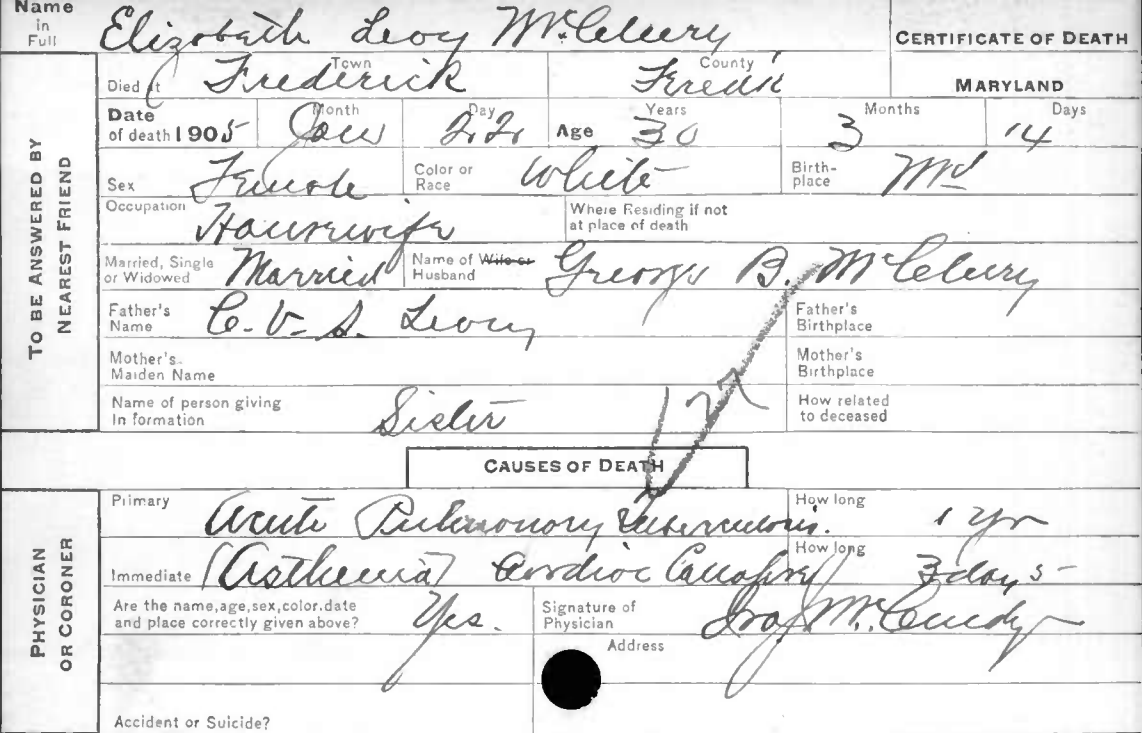 Name in Full Elizabeth Levy McCleery
CERTIFICATE OF DEATH
TO BE ANSWERED BY NEAREST FRIEND
Died at Town Frederick County Fredk MARYLAND
Date of death 1905 Month Jan Day 22 Age Years 30 Months 3 Days 14
Sex Female Color or Race White Birth-place Md
Occupation Housewife Where Residing if not at place of death
Married, Single or Widowed Married Name of Wife or Husband George B. McCleery
Father's Name C. V. S. Levy Father's Birthplace
Mother's Maiden Name Mother's Birthplace
Name of person giving In formation Sister How related to deceased
CAUSES OF DEATH
PHYSICIAN OR CORONER
Primary Acute Pulmonary Tuberculosis. How long 1 yr
Immediate (Asthenia) Cardiac How long 3 days
Are the name,age,sex,color.date and place correctly given above? Yes. Signature of Physician Ira J. McCurdy
Address
Accident or Suicide?